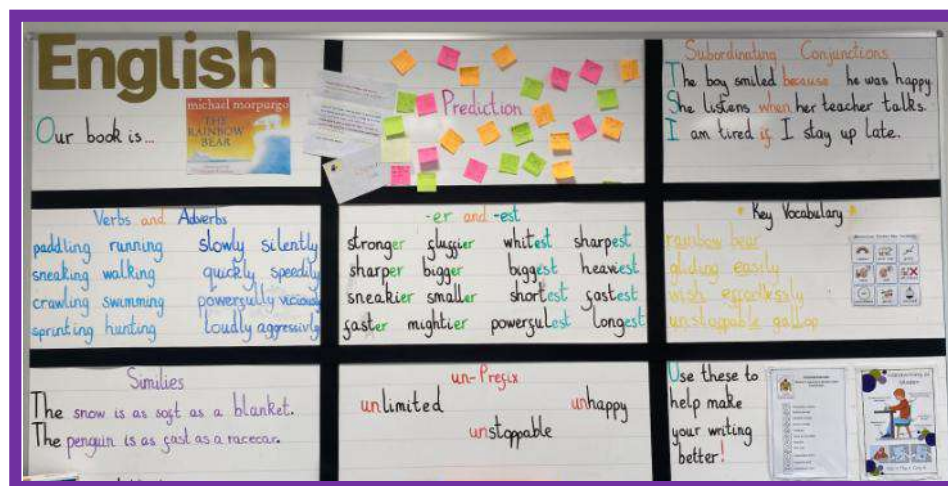 English
Our book is...
michael morpurgo
THE
RAINBOW
BEAR
Prediction
Subordinating Conjunctions
The boy smiled because he was happy.
She listens when her teacher talks.
I am tired if I stay up late.
Verbs and Adverbs
paddling running slowly silently
sneaking walking quickly speedily
crawling swimming powerfully viciously
sprinting hunting loudly aggressivly
-er and -est
stronger fluffier whitest sharpest
sharper bigger biggest heaviest
sneakier smaller shortest fastest
faster mightier powerfulest longest
Key Vocabulary
rainbow bear
gliding easily
wish effortlessly
unstoppable gallop
Similies
The snow is as soft as a blanket.
The penguin is as fast as a racecar.
un-Prefix
unlimited unhappy
unstoppable
Use these to
help make
your writing
better!